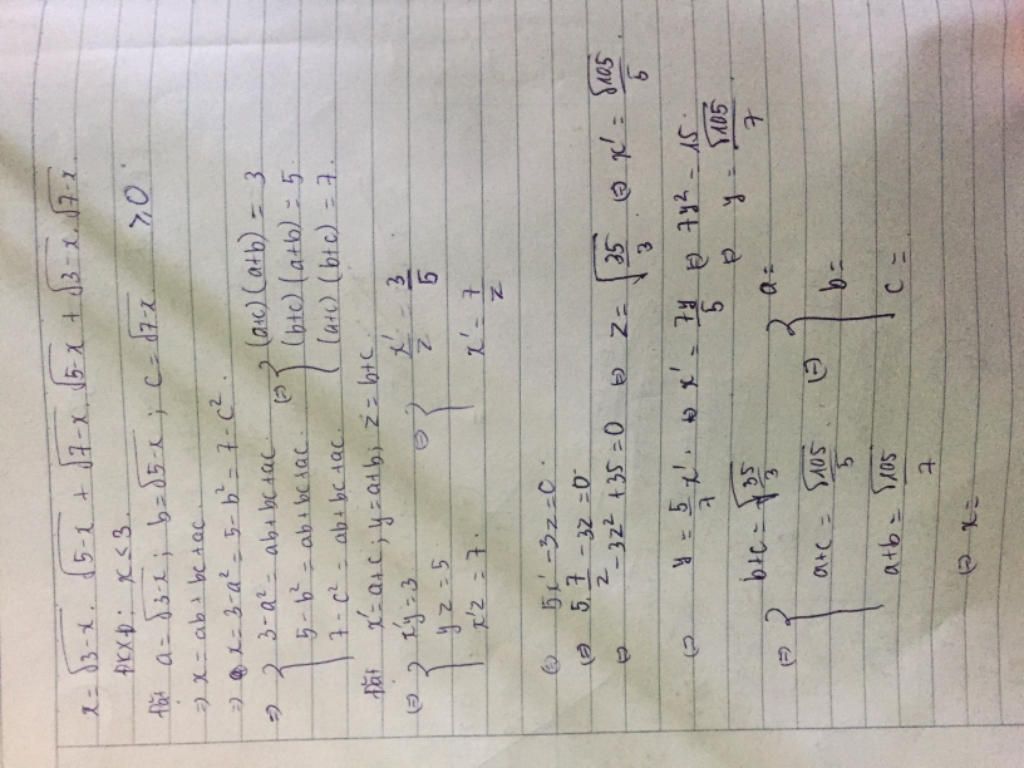 x = √3-x . √5-x + √7-x . √5-x + √3-x . √7-x.
ĐKXĐ: x ≤ 3.
Đặt a = √3-x ; b = √5-x ; c = √7-x ≥ 0.
⇒ x = ab + bc + ac.
⇒ x = 3-a² = 5-b² = 7-c².
⇒ { 3-a² = ab+bc+ac ⇔ { (a+c)(a+b) = 3
5-b² = ab+bc+ac (b+c)(a+b) = 5.
7-c² = ab+bc+ac. (a+c)(b+c) = 7.
Đặt x' = a+c ; y = a+b ; z = b+c.
⇔ { x'y = 3 ⇔ { x'/z = 3/5
yz = 5
x'z = 7. x' = 7/z
⇔ 5x' - 3z = 0.
⇔ 5. 7/z - 3z = 0
⇔ -3z² + 35 = 0 ⇔ z = √35/3 ⇔ x' = √105/5.
⇔ y = 5/7 x'. ⇔ x' = 7y/5 ⇔ 7y² = 15.
⇔ y = √105/7.
⇔ { b+c = √35/3 ⇔ { a =
a+c = √105/5 b =
a+b = √105/7 c =
⇔ x =